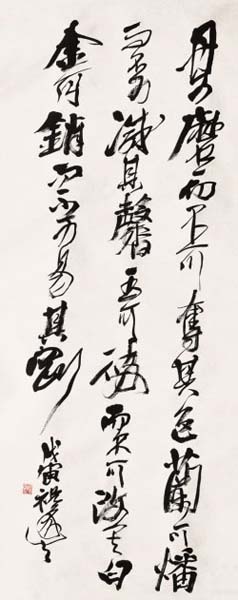 丹可磨而不可奪其色蘭可燔
而不可滅其馨玉可碎而不可改其白
金可銷而不可易其剛
戊寅